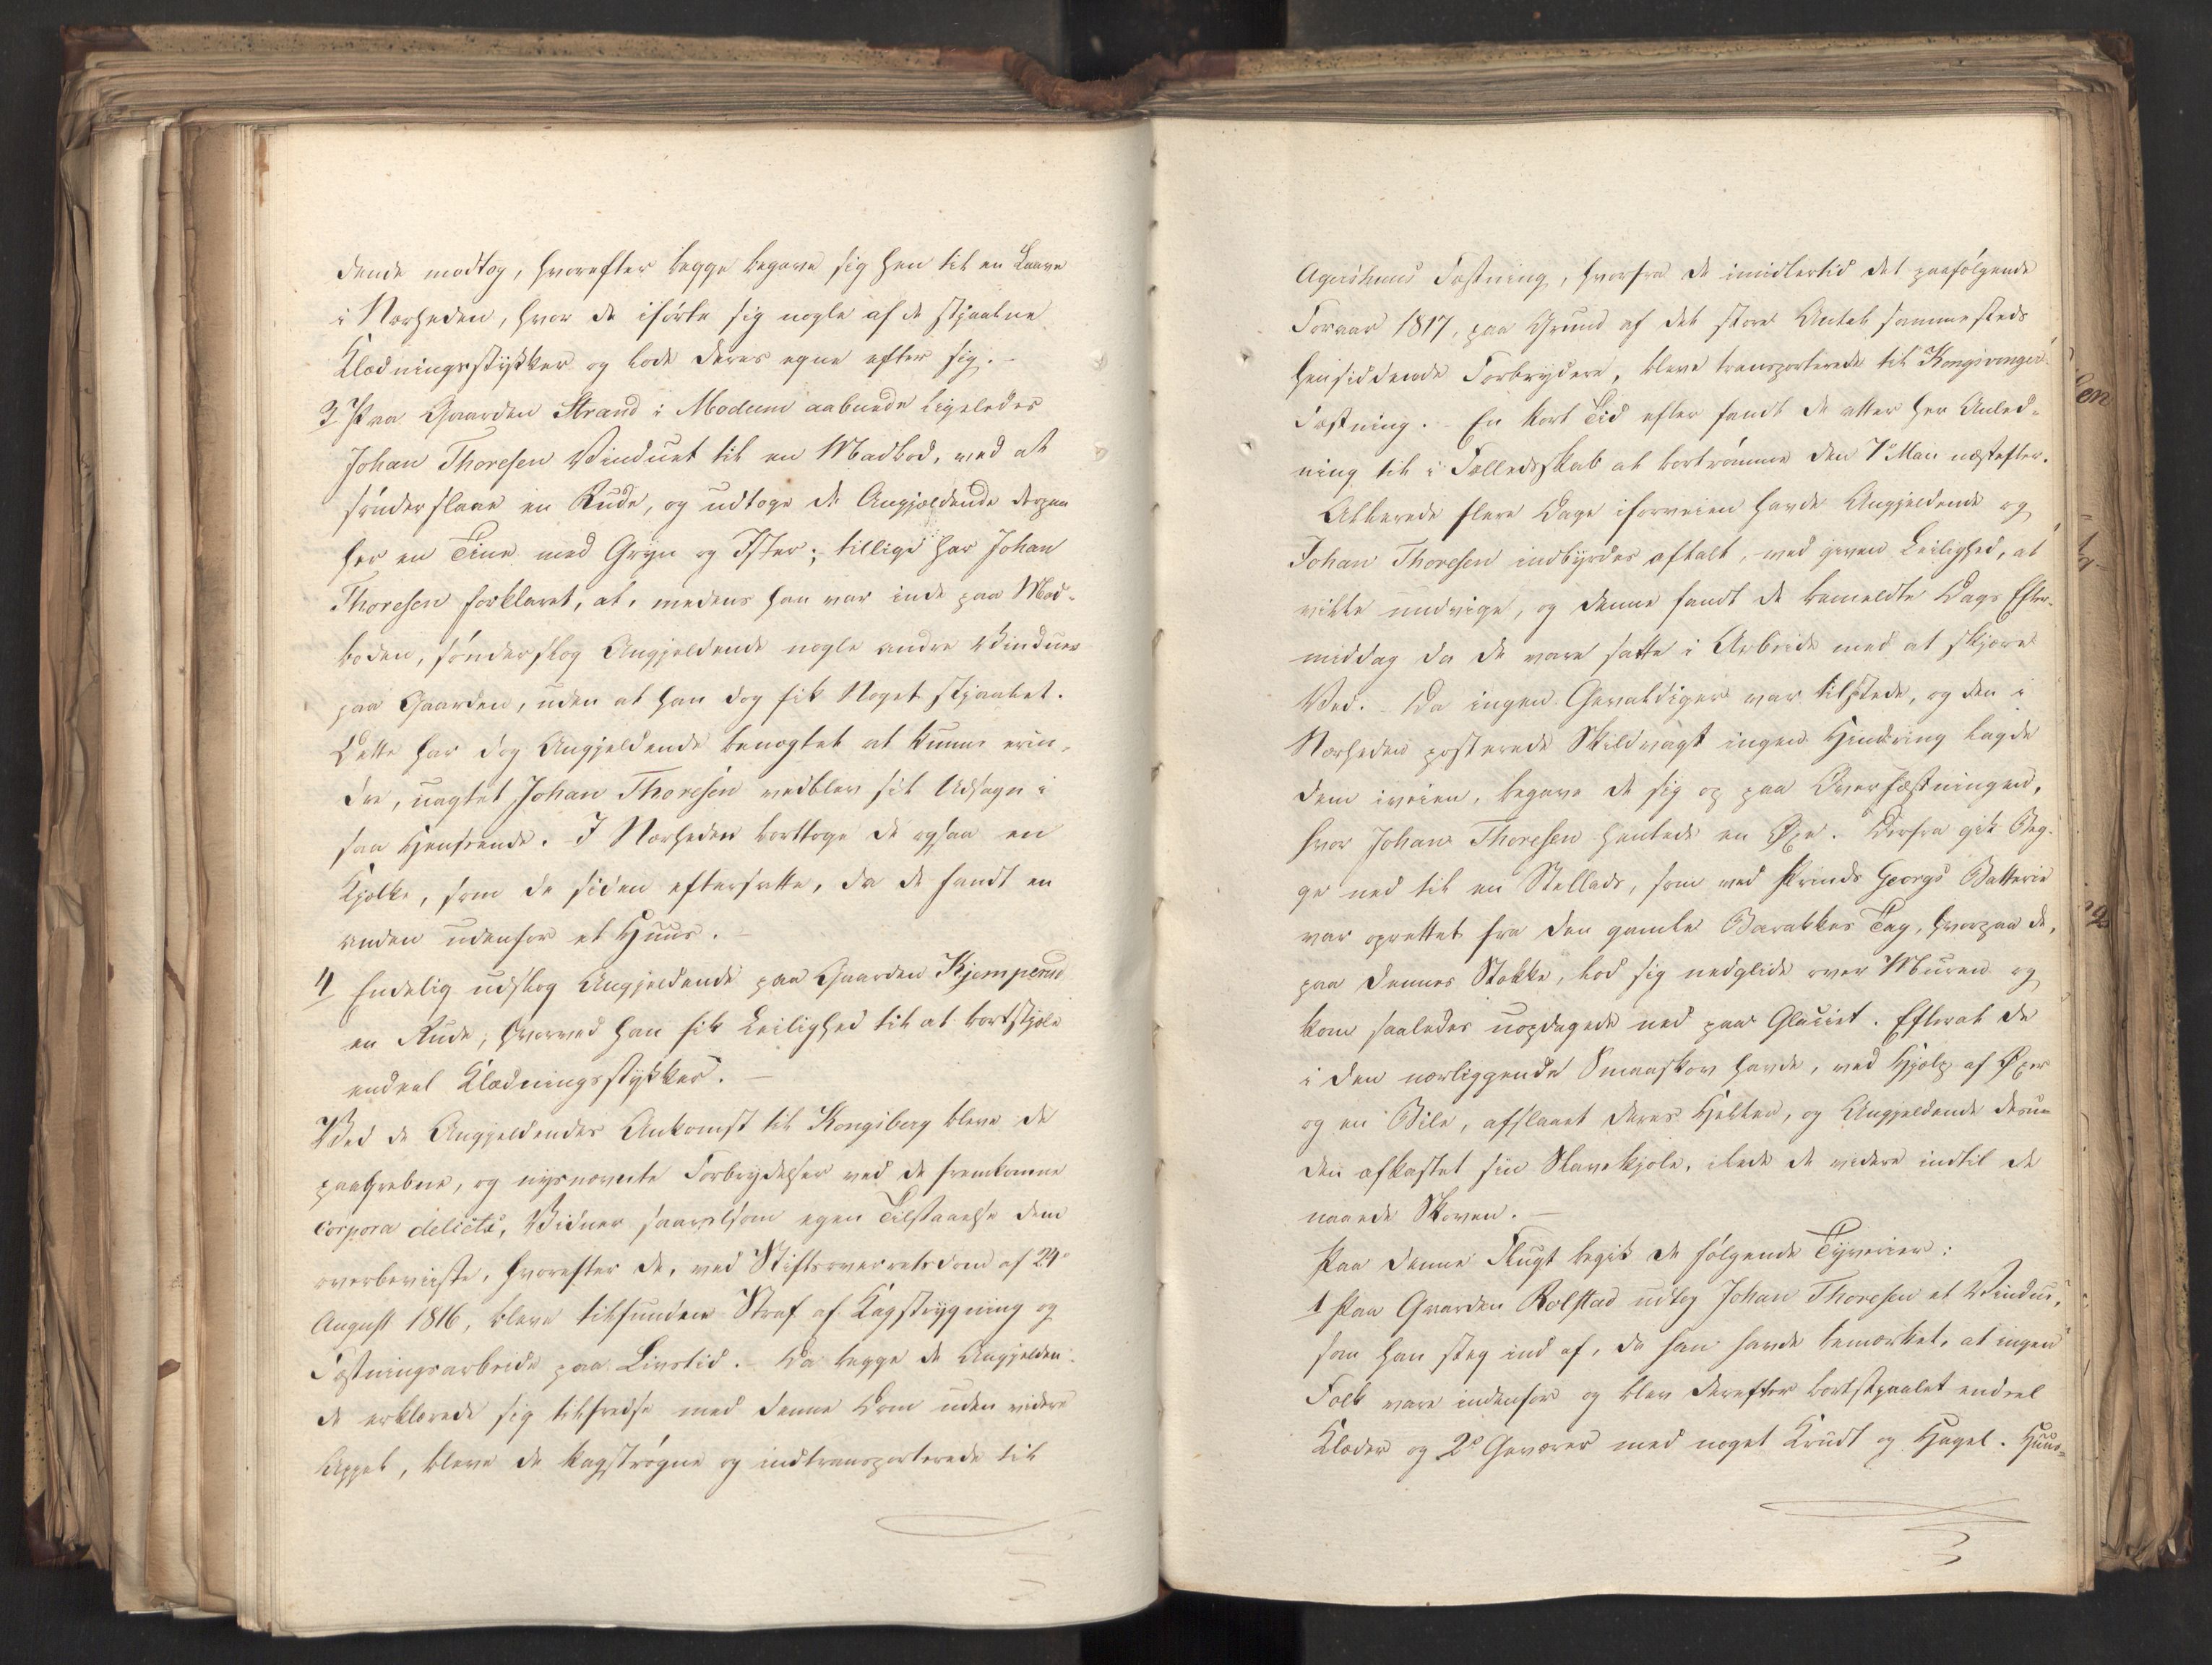 dende modtog, hvorefter begge begave sig hen til en Laave
i Nærheden, hvor de iførte sig nogle af de stjaalne
Klædningsstykker og lode deres egne efter sig.–
3 Paa Gaarden Strand i Modum aabnede ligeledes
Johan Thoresen Vinduet til en Madbod, ved at
sønderslaae en Rude, og udtoge de Angjældende derpaa
her en Tine med Gryn og Ister; tillige har Johan
Thoresen forklaret, at, medens han var inde paa Mad-
boden, sønderslog Angjeldende nogle andre Vinduer
paa Gaarden, uden at han dog fik Noget stjaalet.
Dette har dog Angjeldende benægtet at kunne erin-
dre, uagtet Johan Thoresen vedblev sit Udsagn i
saa Henseende. I Nærheden borttoge de ogsaa en
Kjelke, som de siden eftersatte, da de fandt en
anden udenfor et Huus.–
4 Endelig udslog Angjeldende paa Gaarden Kjemperud
en Rude, hvorved han fik Leilighed til at bortstjæle
endeel Klædningsstykker.–
Ved de Angjeldendes Ankomst til Kongsberg bleve de
paagrebne, og nysnævnte Forbrydelser ved de fremkomne
corpora delicti, Vidner saavelsom egen Tilstaaelse dem
overbeviiste, hvorefter de, ved Stiftsoverretsdom af 24de
August 1816, bleve tilfundne Straf af Kagstrygning og
Fæstningsarbeide paa Livstid. Da begge de Angjelden-
de erklærede sig tilfredse med denne Dom uden videre
Appel, bleve de kagstrøgne og indtransporterede til
Agershuus Fæstning, hvorfra de imidlertid det paafølgende
Foraar 1817, paa Grund af det store Antal sammesteds
hensiddende Forbrydere, bleve transporterede til Kongsvinger
Fæstning. En kort Tid efter fandt de atter her Anled-
ning til i Fælledsskab at bortrømme den 7de Mai næstefter.
Allerede flere Dage iforveien havde Angjeldende og
Johan Thoresen indbyrdes aftalt, ved given Leilighed, at
ville undvige, og denne fandt de bemeldte Dags Efter-
middag da de vare satte i Arbeide med at skjære
Ved. Da ingen Gevaldiger var tilstede, og den i
Nærheden posterede Skildvagt ingen Hindring lagde
dem iveien, begave de sig op paa Overfæstningen,
hvor Johan Thoresen hentede en Øxe. Derfra gik Beg-
ge ned til en Stellads, som ved Prinds Georgs Batterie
var oprettet fra den gamle Barakkes Tag, hvorpaa de,
paa dennes Stokke, lod sig nedglide over Muren og
kom saaledes uopdagede ned paa Glaciet. Efterat de
i den nærliggende Smaaskov havde, ved Hjelp af Øxer
og en Bile, afslaaet deres Helter, og Angjeldende desu-
den afkastet sin Slavekjole, ilede de videre indtil de
naaede Skoven.–
Paa denne Flugt begik de følgende Tyverier:
1 Paa Gaarden Rolstad udtog Johan Thoresen et Vindue,
som han steg ind af, da han havde bemærket, at ingen
Folk vare indenfor og blev derefter bortstjaalet endeel
Klæder og 2de Geværer med noget Krudt og Hagel. Huus-